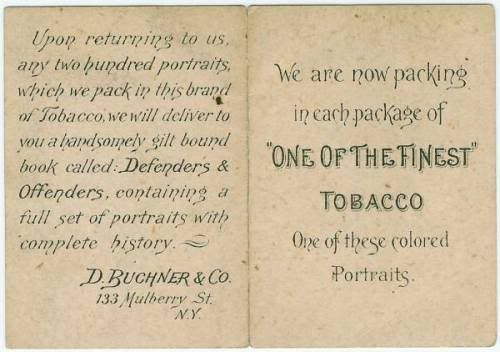 Upon returning to us,
any two hundred portraits,
which we pack in this brand
of Tobacco, we will deliver to
you a handsomely gilt bound
book called: Defenders &
Offenders, containing a
full set of portraits with
complete history.
D. BUCHNER & CO.
133 Mulberry St.
N.Y.
We are now packing
in each package of
"ONE OF THE FINEST"
TOBACCO
One of these colored
Portraits.